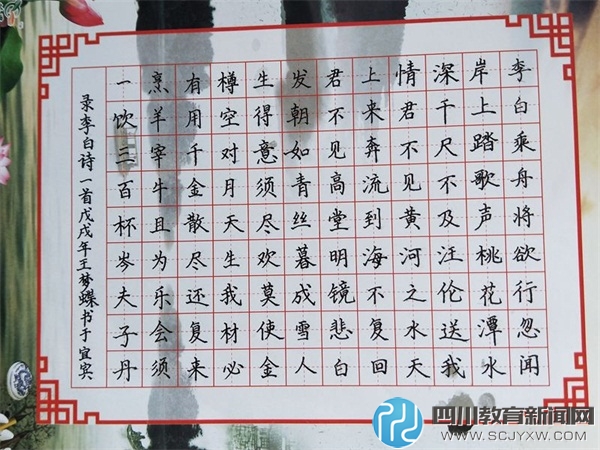 李白乘舟将欲行忽闻
岸上踏歌声桃花潭水
深千尺不及汪伦送我
情君不见黄河之水天
上来奔流到海不复回
君不见高堂明镜悲白
发朝如青丝暮成雪人
生得意须尽欢莫使金
樽空对月天生我材必
有用千金散尽还复来
烹羊宰牛且为乐会须
一饮三百杯岑夫子丹
录李白诗一首戊戌年王梦蝶书于宜宾
四川教育新闻网
WWW.SCJYXW.COM